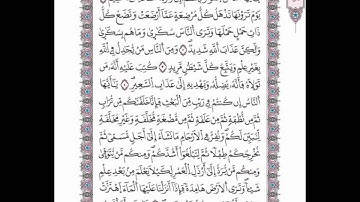 يَوْمَ تَرَوْنَهَا تَذْهَلُ كُلُّ مُرْضِعَةٍ عَمَّا أَرْضَعَتْ وَتَضَعُ كُلُّ
ذَاتِ حَمْلٍ حَمْلَهَا وَتَرَى النَّاسَ سُكَارَى وَمَا هُم بِسُكَارَى
وَلَكِنَّ عَذَابَ اللَّهِ شَدِيدٌ وَمِنَ النَّاسِ مَن يُجَادِلُ فِي اللَّهِ
بِغَيْرِ عِلْمٍ وَيَتَّبِعُ كُلَّ شَيْطَانٍ مَّرِيدٍ كُتِبَ عَلَيْهِ أَنَّهُ مَن
تَوَلَّاهُ فَأَنَّهُ يُضِلُّهُ وَيَهْدِيهِ إِلَى عَذَابِ السَّعِيرِ يَا أَيُّهَا
النَّاسُ إِن كُنتُمْ فِي رَيْبٍ مِّنَ الْبَعْثِ فَإِنَّا خَلَقْنَاكُم مِّن تُرَابٍ
ثُمَّ مِن نُّطْفَةٍ ثُمَّ مِنْ عَلَقَةٍ ثُمَّ مِن مُّضْغَةٍ مُّخَلَّقَةٍ وَغَيْرِ مُخَلَّقَةٍ
لِّنُبَيِّنَ لَكُمْ وَنُقِرُّ فِي الْأَرْحَامِ مَا نَشَاءُ إِلَى أَجَلٍ مُّسَمًّى ثُمَّ
نُخْرِجُكُمْ طِفْلًا ثُمَّ لِتَبْلُغُوا أَشُدَّكُمْ وَمِنكُم مَّن يُتَوَفَّى
وَمِنكُم مَّن يُرَدُّ إِلَى أَرْذَلِ الْعُمُرِ لِكَيْلَا يَعْلَمَ مِن بَعْدِ عِلْمٍ
شَيْئًا وَتَرَى الْأَرْضَ هَامِدَةً فَإِذَا أَنزَلْنَا عَلَيْهَا الْمَاءَ اهْتَزَّتْ